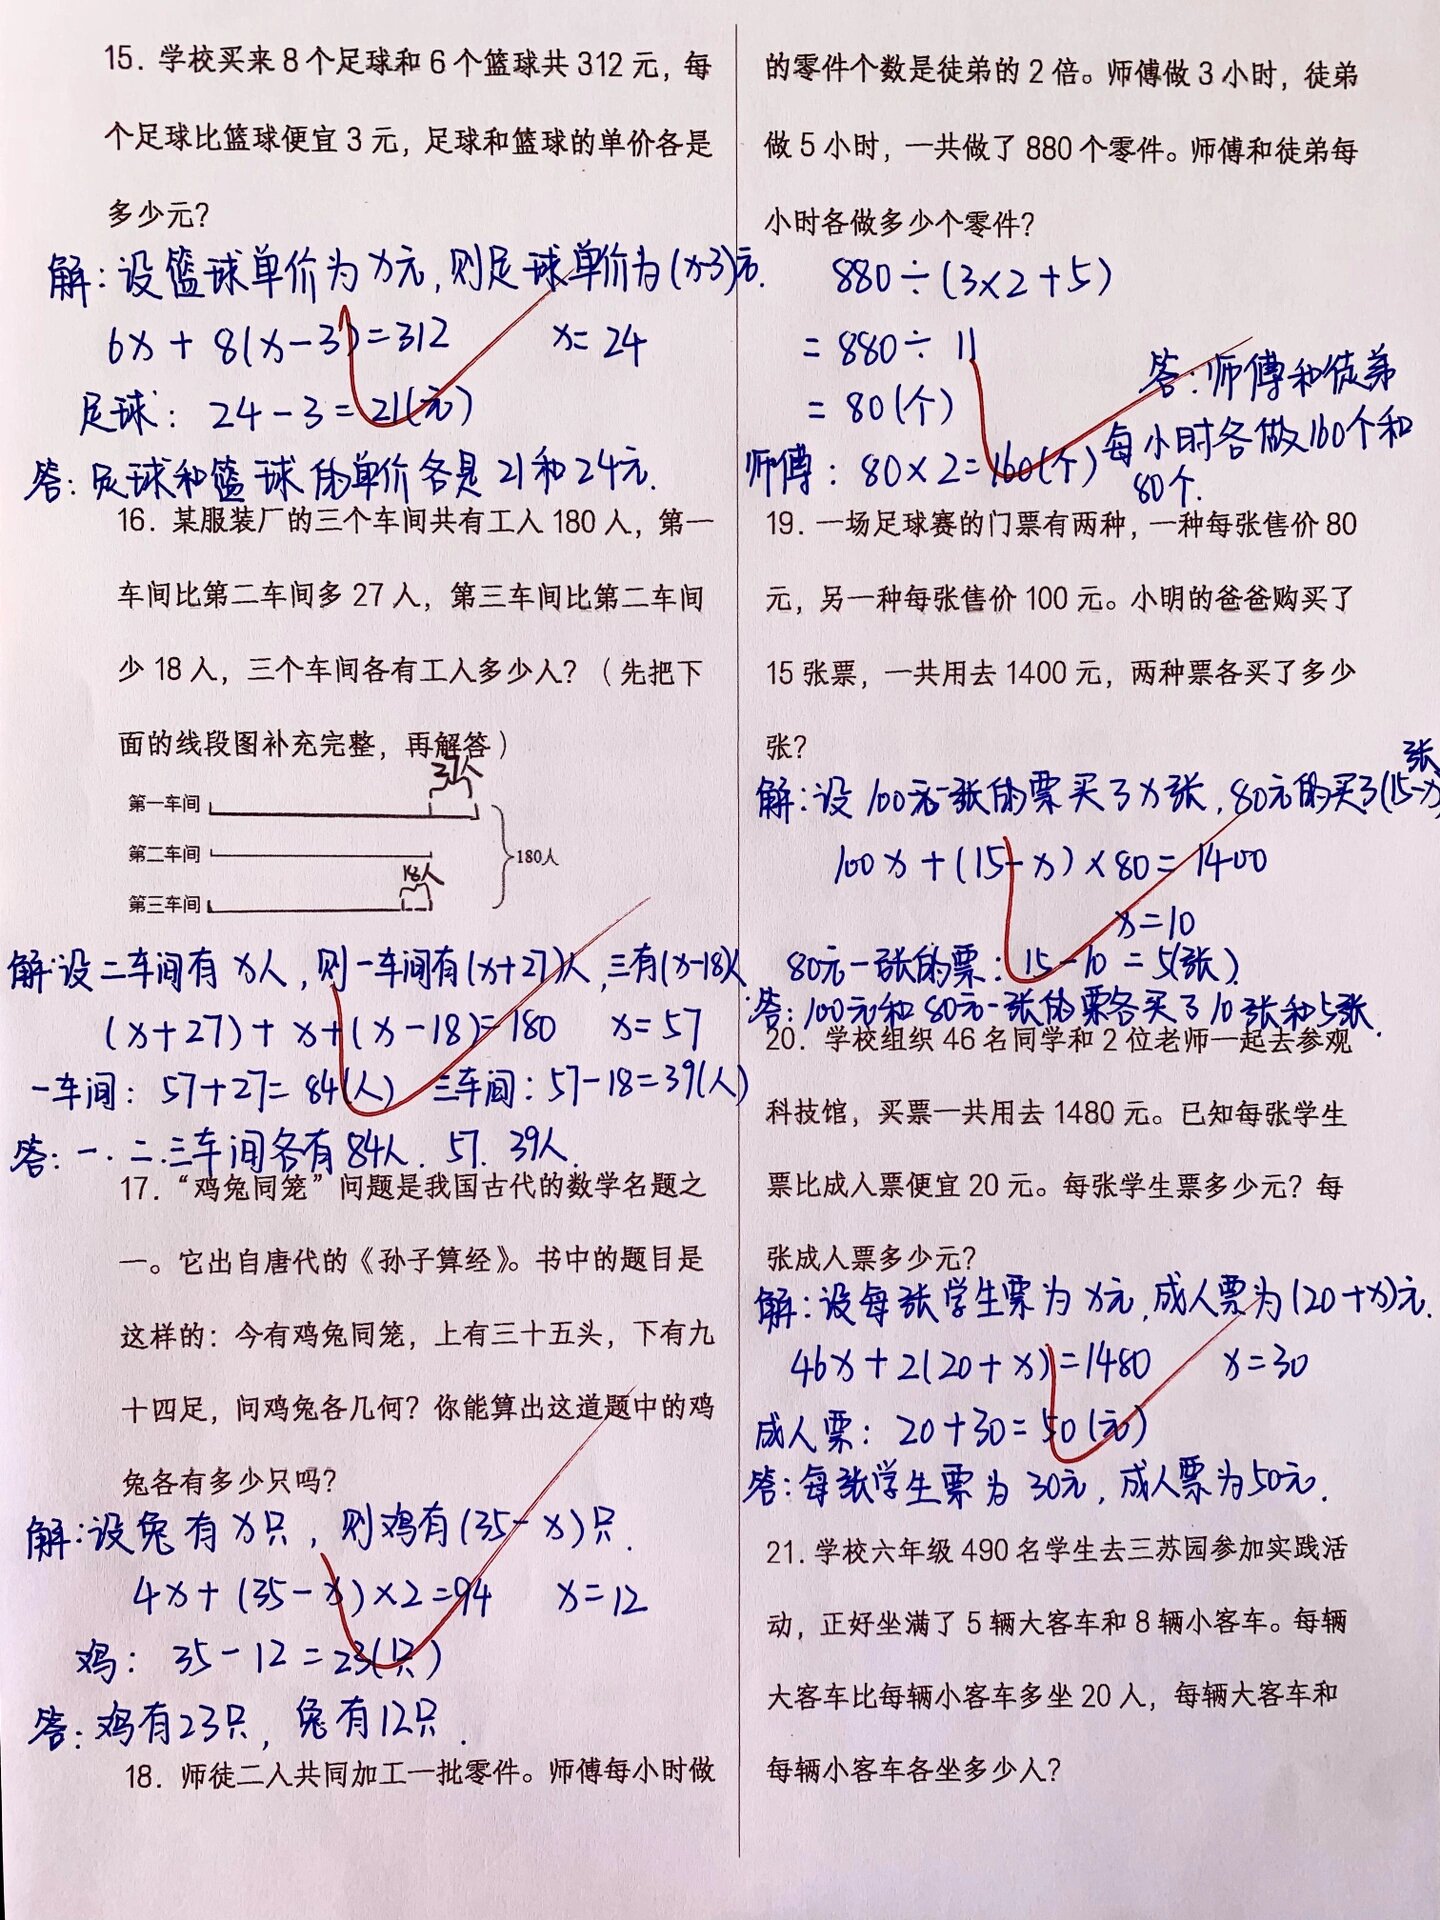 15. 学校买来 8 个足球和 6 个篮球共 312 元，每
个足球比篮球便宜 3 元，足球和篮球的单价各是
多少元？
解：设篮球单价为x元，则足球单价为(x-3)元.
6x + 8(x-3)=312 x=24
足球： 24-3=21(元)
答：足球和篮球的单价各是21和24元.
16. 某服装厂的三个车间共有工人 180 人，第一
车间比第二车间多 27 人，第三车间比第二车间
少 18 人，三个车间各有工人多少人？（先把下
面的线段图补充完整，再解答）
第一车间
第二车间 180人
18人
第三车间
解：设二车间有x人，则一车间有(x+27)人，三有(x-18)人
(x+27)+x+(x-18)=180 x=57
一车间：57+27=84(人) 三车间：57-18=39(人)
答：一.二.三车间各有84人. 57. 39人.
17. “鸡兔同笼”问题是我国古代的数学名题之
一。它出自唐代的《孙子算经》。书中的题目是
这样的：今有鸡兔同笼，上有三十五头，下有九
十四足，问鸡兔各几何？你能算出这道题中的鸡
兔各有多少只吗？
解：设兔有x只，则鸡有(35-x)只.
4x+(35-x)×2=94 x=12
鸡： 35-12=23(只)
答：鸡有23只，兔有12只.
18. 师徒二人共同加工一批零件。师傅每小时做
的零件个数是徒弟的 2 倍。师傅做 3 小时，徒弟
做 5 小时，一共做了 880 个零件。师傅和徒弟每
小时各做多少个零件？
880÷(3×2+5)
=880÷11
=80(个)
师傅：80×2=160(个)
答：师傅和徒弟
每小时各做160个和
80个.
19. 一场足球赛的门票有两种，一种每张售价 80
元，另一种每张售价 100 元。小明的爸爸购买了
15 张票，一共用去 1400 元，两种票各买了多少
张？
解：设100元一张的票买了x张，80元的买了(15-x)张
100x+(15-x)×80=1400
x=10
80元一张的票：15-10=5(张).
答：100元和80元一张的票各买了10张和5张.
20. 学校组织 46 名同学和 2 位老师一起去参观
科技馆，买票一共用去 1480 元。已知每张学生
票比成人票便宜 20 元。每张学生票多少元？每
张成人票多少元？
解：设每张学生票为x元，成人票为(20+x)元.
46x+2(20+x)=1480 x=30
成人票：20+30=50(元)
答：每张学生票为30元，成人票为50元.
21. 学校六年级 490 名学生去三苏园参加实践活
动，正好坐满了 5 辆大客车和 8 辆小客车。每辆
大客车比每辆小客车多坐 20 人，每辆大客车和
每辆小客车各坐多少人？